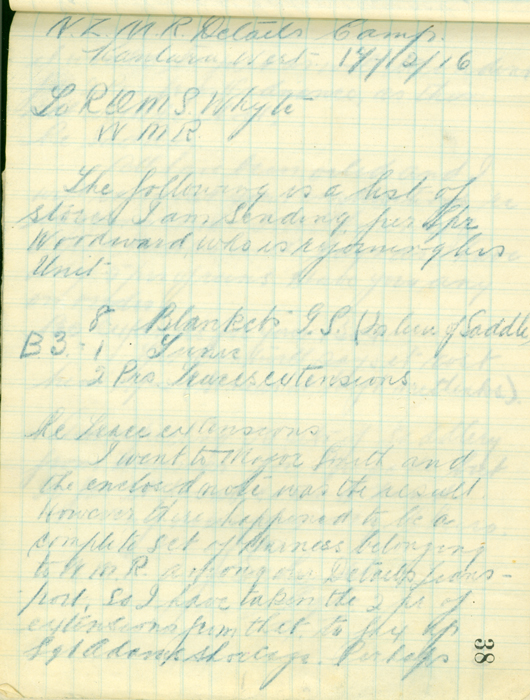 N. Z. M. R. Details Camp.
Kantara West 17/12/16
To R Q M S. Whyte
W M R.
The following is a list of
stores I am sending per Tpr
Woodward, who is rejoining his
Unit
8 Blankets G.S. (In lieu of Saddle
B3. 1 Tunic
2 Prs. Traces extensions
Re Trace extensions.
I went to Major Smith and
the enclosed note was the result.
However there happened to be a
complete set of Harness belonging
to W M R. among our Details trans-
port, so I have taken the 2 prs of
extensions from that to fix up
Sgt Adams shortage. Perhaps
38